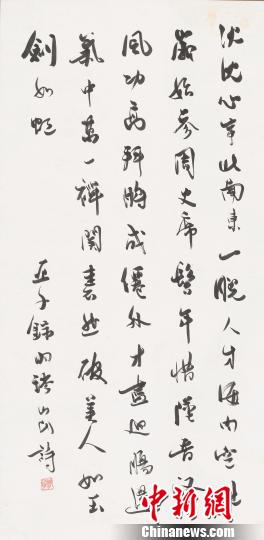 沈沈心事北南東一睨人才海内空壯
歲始參周史席髫年惜墮晉賢
風功高拜將成僊外才盡迴腸盪
氣中萬一禪關砉然破美人如玉
劍如虹
亞子錄羽琌山民詩
中新网
Chinanews.com